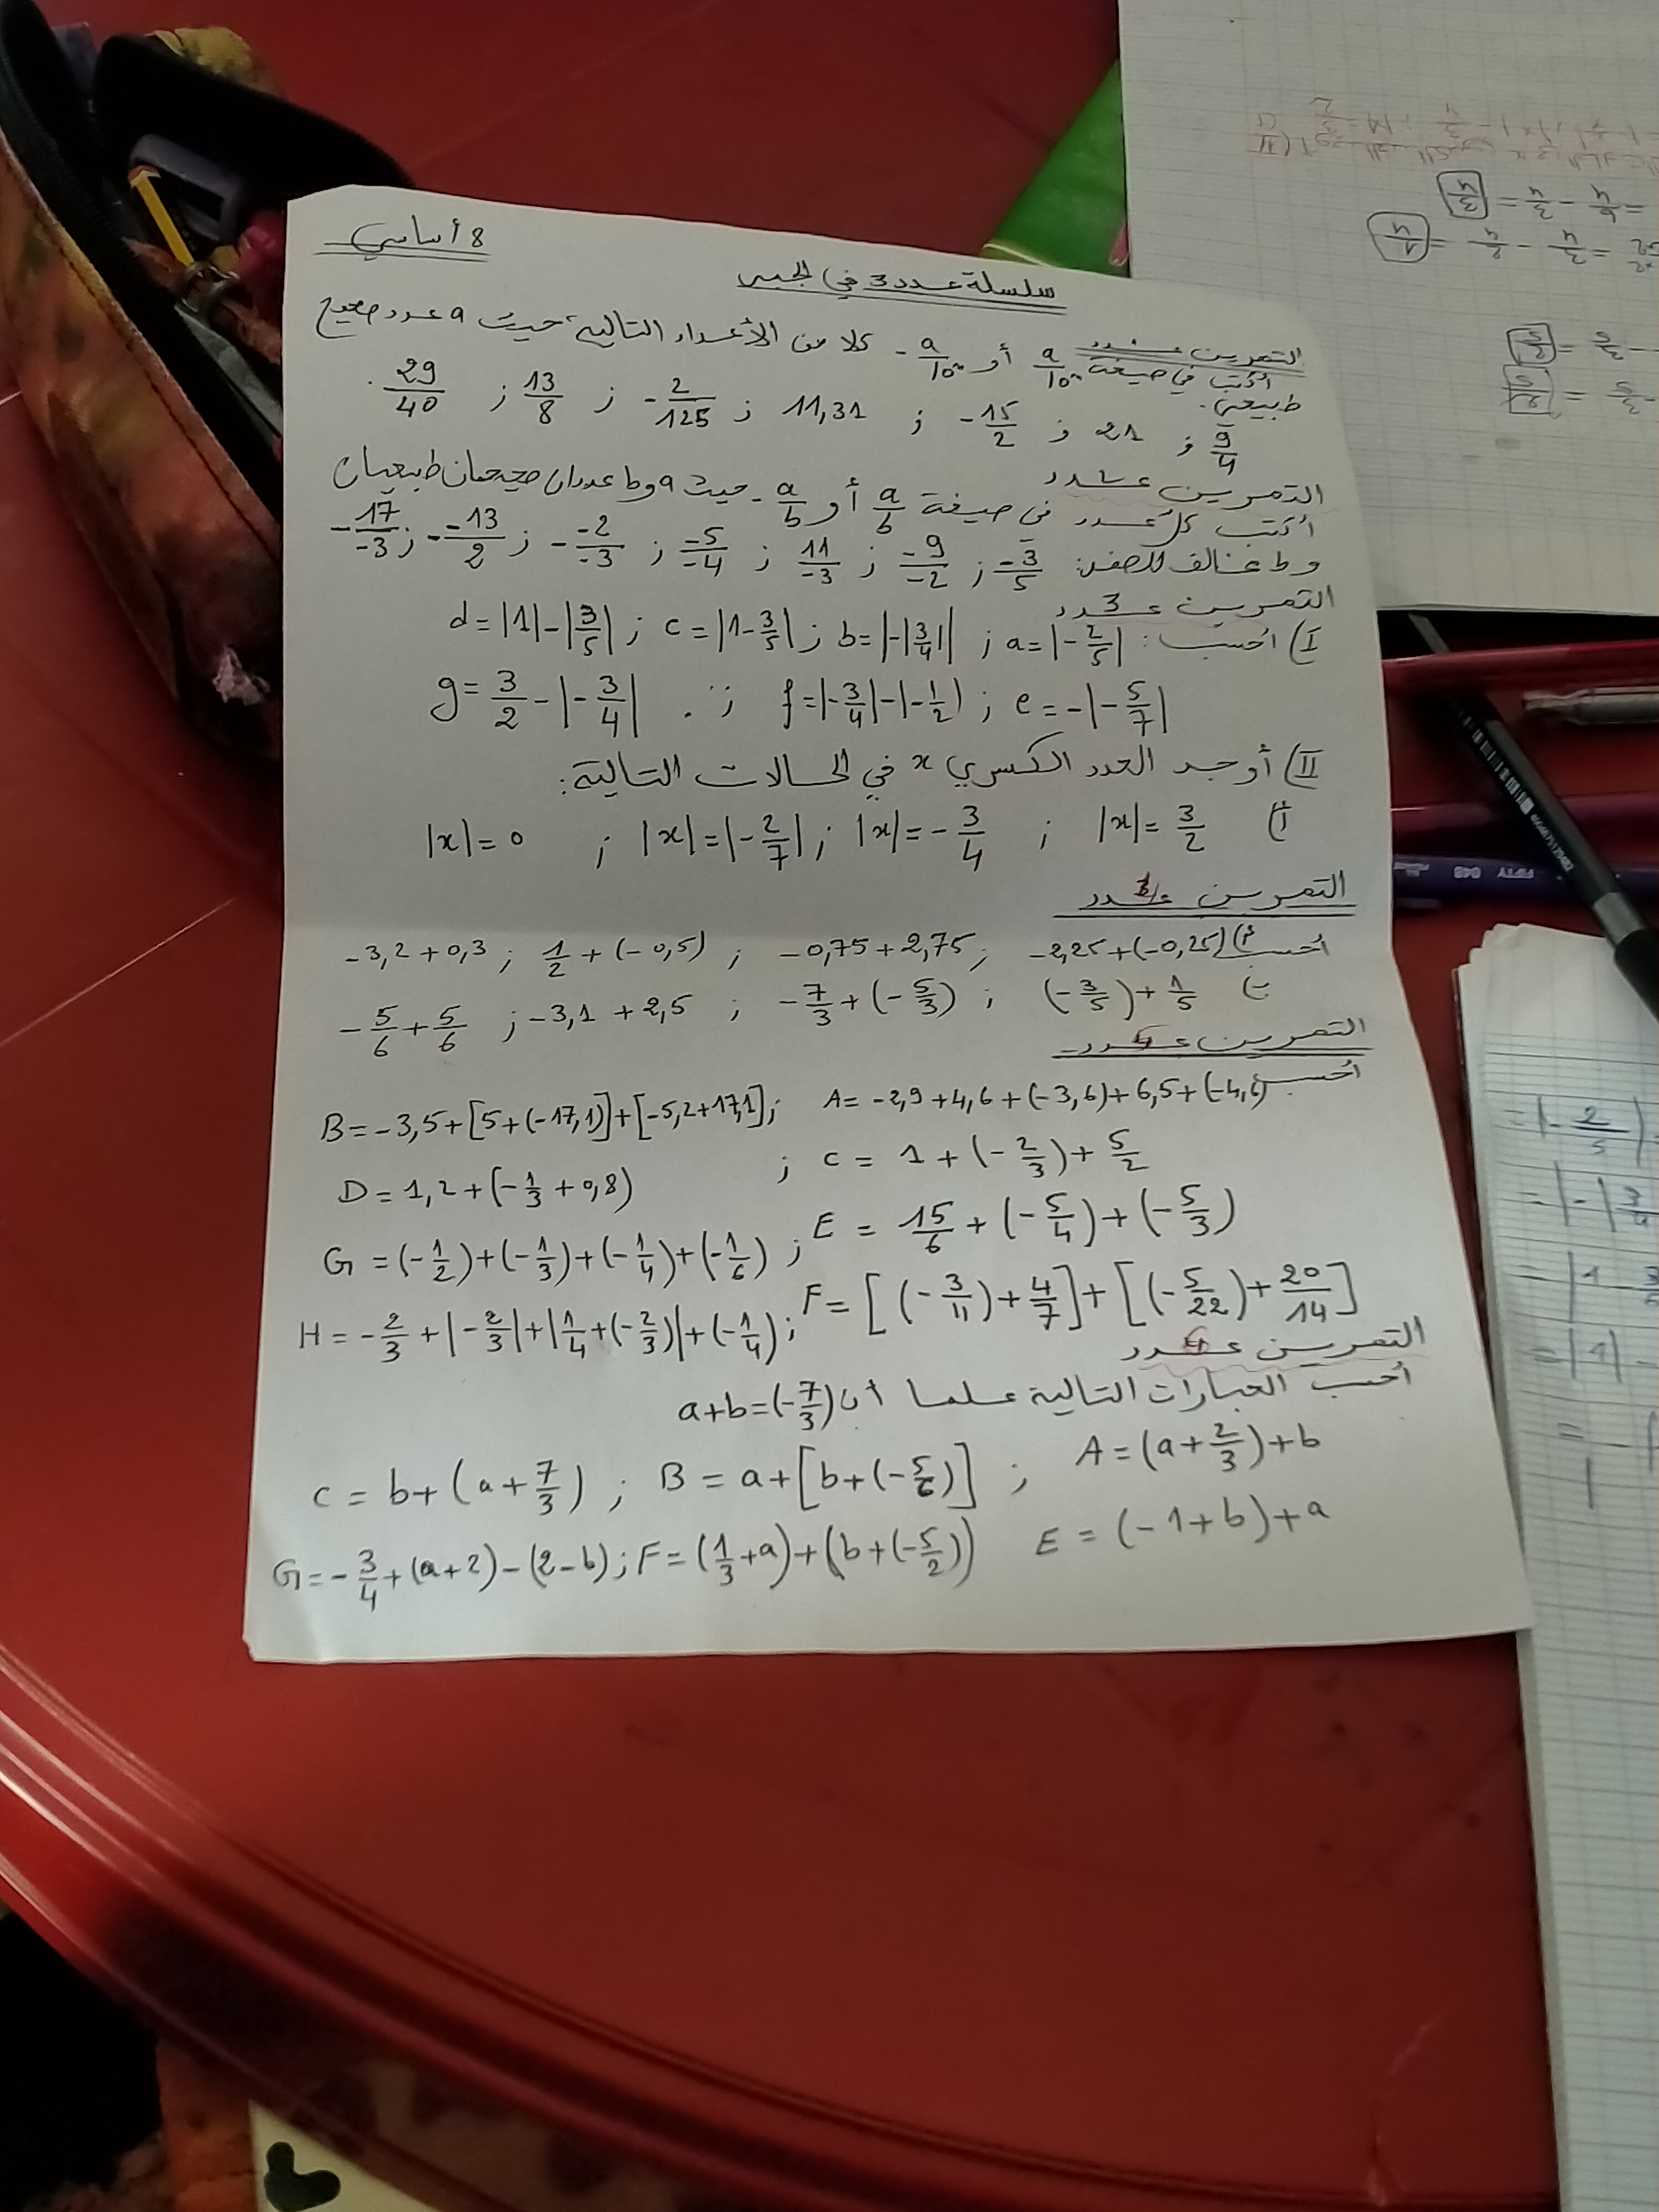 8 أساسي
سلسلة عدد 3 في الجبر
التمرين عدد
أكتب في صيغة a/10ⁿ أو -a/10ⁿ كلا من الأعداد التالية حيث a عدد صحيح
طبيعي.
9/4 ; 21 ; -15/2 ; 11,31 ; -2/125 ; 13/8 ; 29/40 .
التمرين عدد 2
أكتب كل عدد في صيغة a/b أو -a/b حيث a و b عددان صحيحان طبيعيان
و b مخالف للصفر: -3/5 ; -9/-2 ; 11/-3 ; -5/-4 ; - -2/-3 ; - -13/2 ; - 17/-3
التمرين عدد 3
I) أحسب : a=|-2/5| ; b=|-|3/4|| ; c=|1-3/5| ; d=|1|-|3/5|
e=-|-5/7| ; f=|-3/4|-|-1/2| ; g=3/2-|-3/4|
II) أوجد العدد الكسري x في الحالات التالية:
أ) |x|=3/2 ; |x|=-3/4 ; |x|=|-2/7| ; |x|=0
التمرين عدد
أحسب أ) -2,25+(-0,25) ; -0,75+2,75 ; 1/2+(-0,5) ; -3,2+0,3
ب) (-3/5)+1/5 ; -7/3+(-5/3) ; -3,1+2,5 ; -5/6+5/6
التمرين عدد
أحسب A=-2,9+4,6+(-3,6)+6,5+(-4,6)
B=-3,5+[5+(-17,1)]+[-5,2+17,1];
C=1+(-2/3)+5/2 ;
D=1,2+(-1/3+0,8)
E=15/6+(-5/4)+(-5/3)
G=(-1/2)+(-1/3)+(-1/4)+(-1/6) ;
F=[(-3/11)+4/7]+[(-5/22)+20/14]
H=-2/3+|-2/3|+|1/4+(-2/3)|+(-1/4) ;
التمرين عدد
أحسب العبارات التالية علما أن a+b=(-7/3)
A=(a+2/3)+b ; B=a+[b+(-5/6)] ; C=b+(a+7/3)
E=(-1+b)+a F=(1/3+a)+(b+(-5/2)) ; G=-3/4+(a+2)-(2-b)